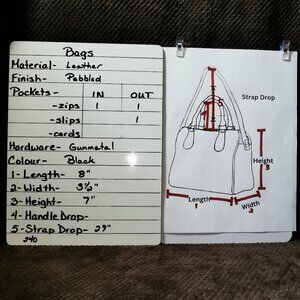 Bags
Material- Leather
Finish- Pebbled
Pockets- IN OUT
-zips 1 1
-slips 1
-cards
Hardware- Gunmetal
Colour- Black
1-Length- 8"
2-Width- 3½"
3-Height- 7"
4-Handle Drop-
5-Strap Drop- 29"
240
Strap Drop
Height
3
Length
1
Width
2